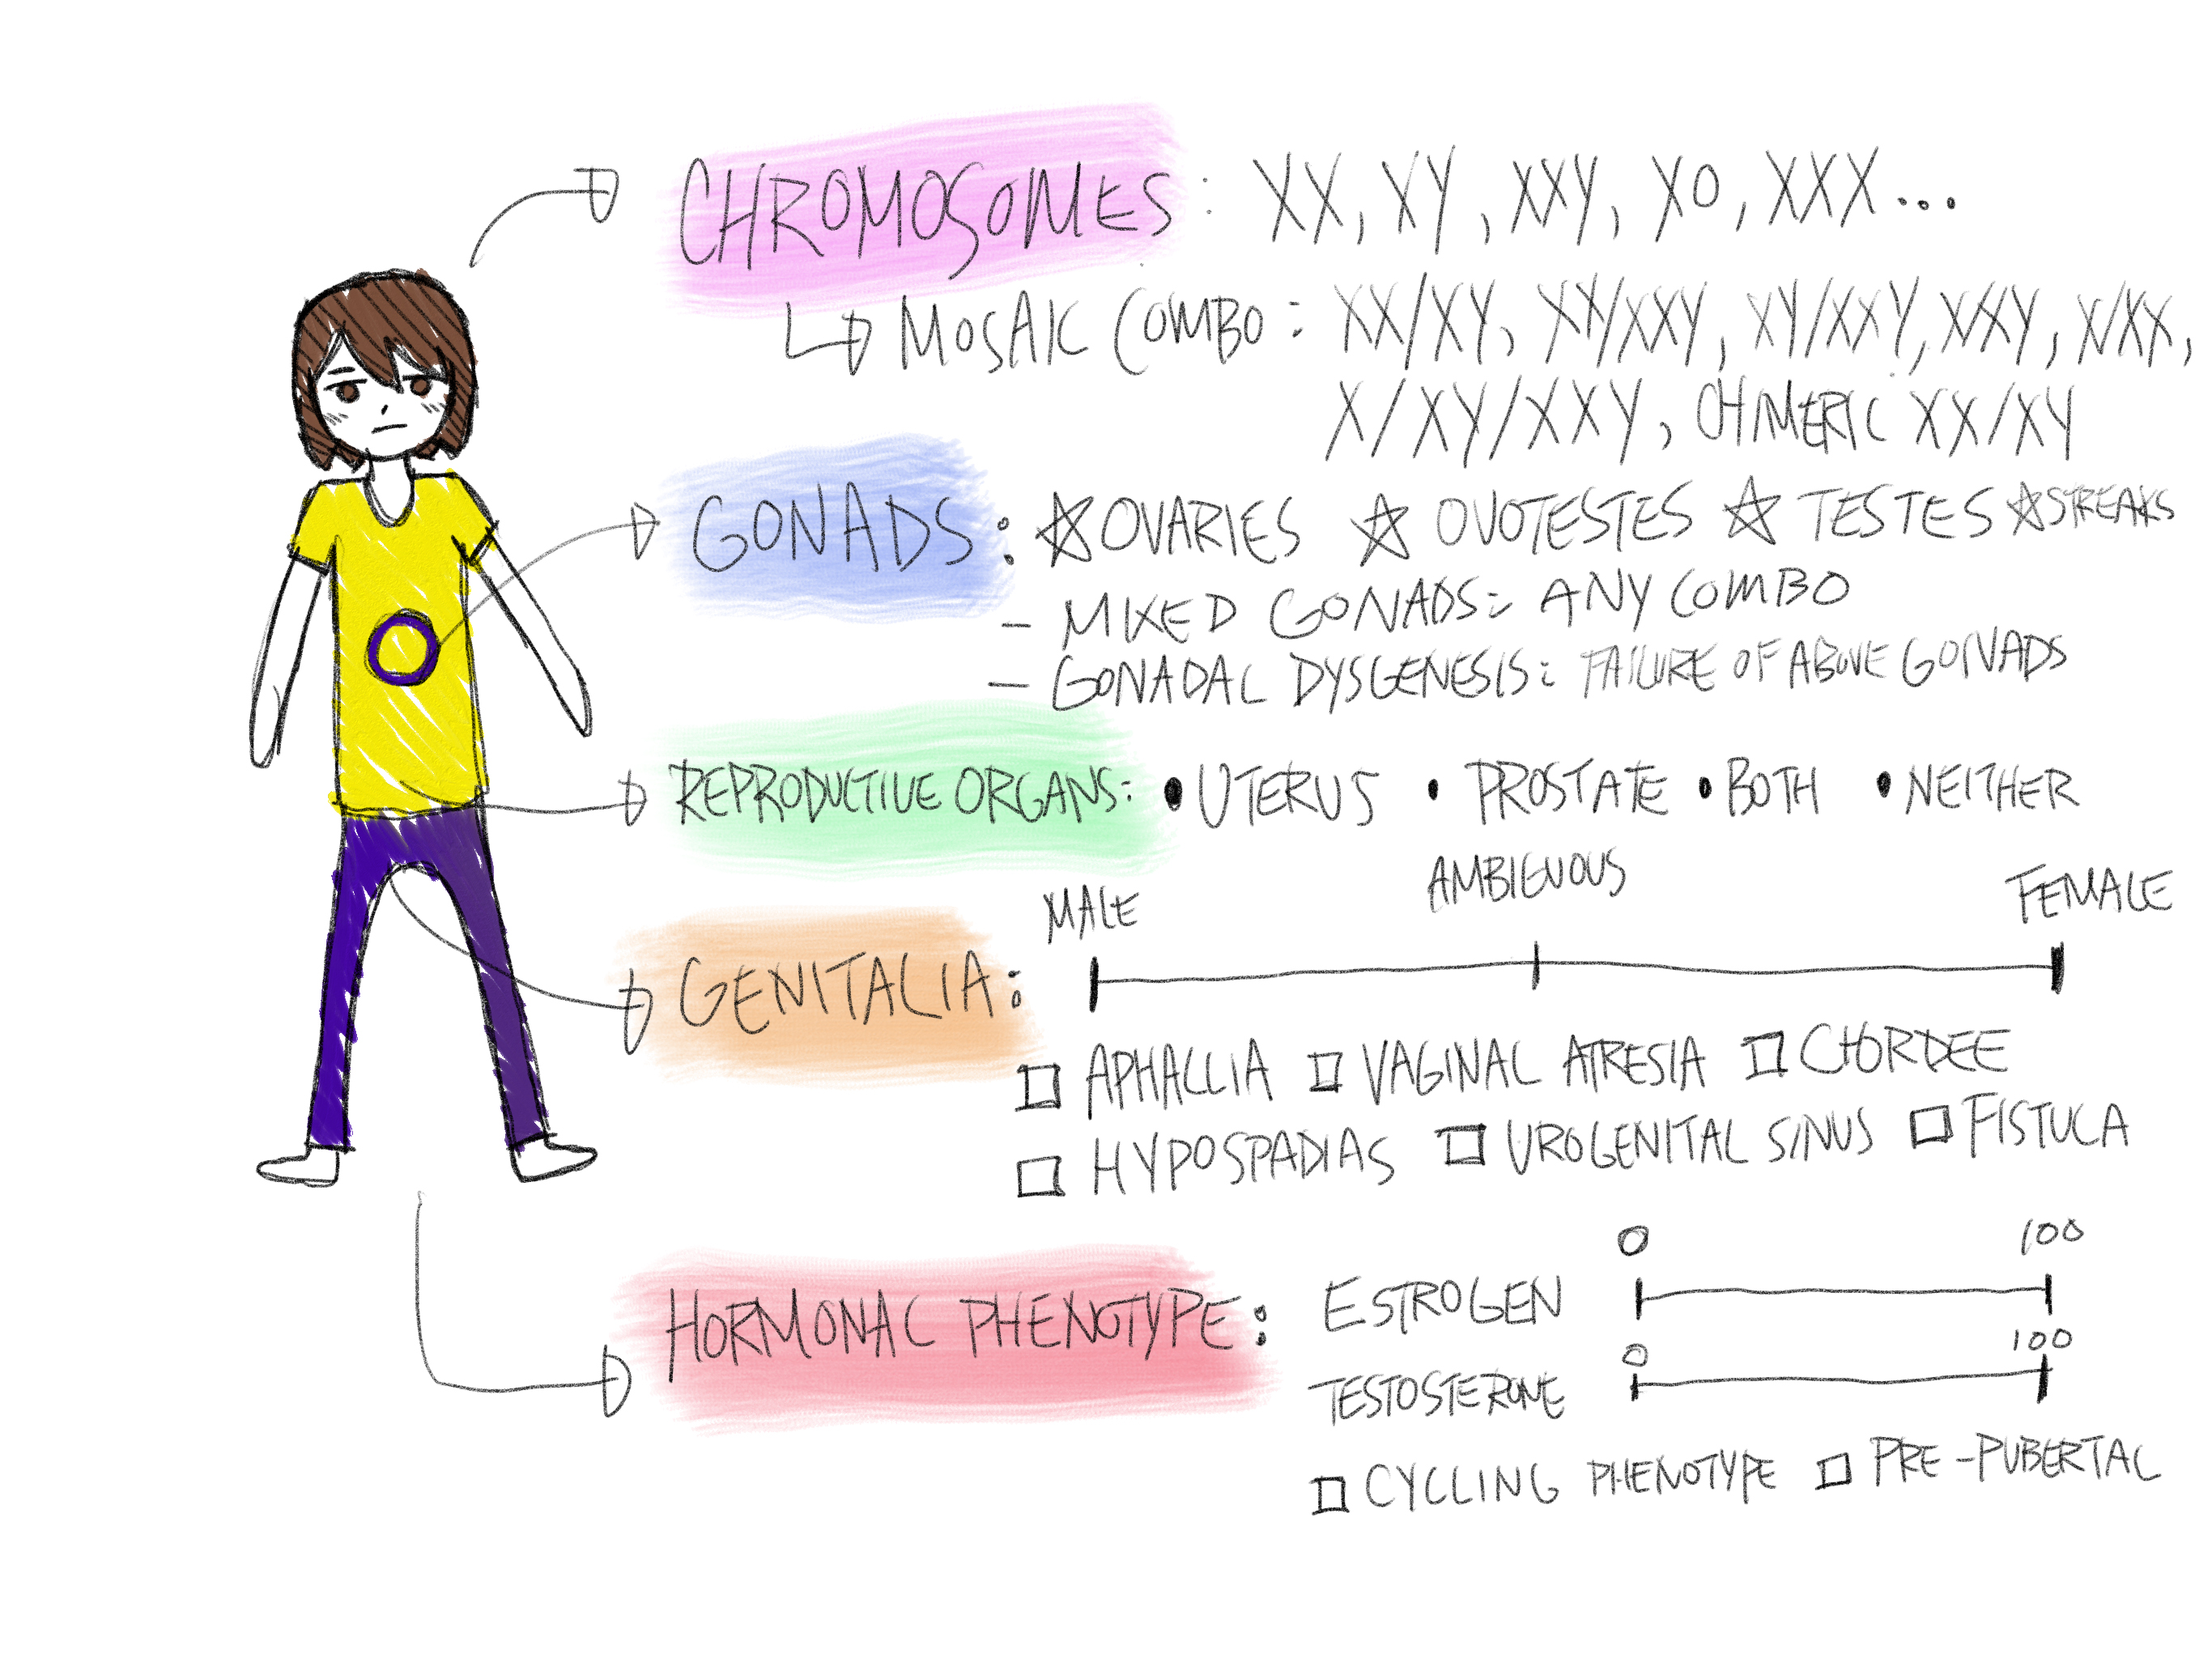 CHROMOSOMES: XX, XY, XXY, XO, XXX...
MOSAIC COMBO: XX/XY, XX/XXY, XY/XXY, X/XY, X/XX,
X/XY/XXY, CHIMERIC XX/XY
GONADS: ☆OVARIES ☆ OVOTESTES ☆ TESTES ☆STREAKS
- MIXED GONADS: ANY COMBO
- GONADAL DYSGENESIS: FAILURE OF ABOVE GONADS
REPRODUCTIVE ORGANS: • UTERUS • PROSTATE • BOTH • NEITHER
MALE AMBIGUOUS FEMALE
GENITALIA:
□ APHALLIA □ VAGINAL ATRESIA □ CHORDEE
□ HYPOSPADIAS □ UROGENITAL SINUS □ FISTULA
0 100
HORMONAL PHENOTYPE: ESTROGEN
0 100
TESTOSTERONE
□ CYCLING PHENOTYPE □ PRE-PUBERTAL